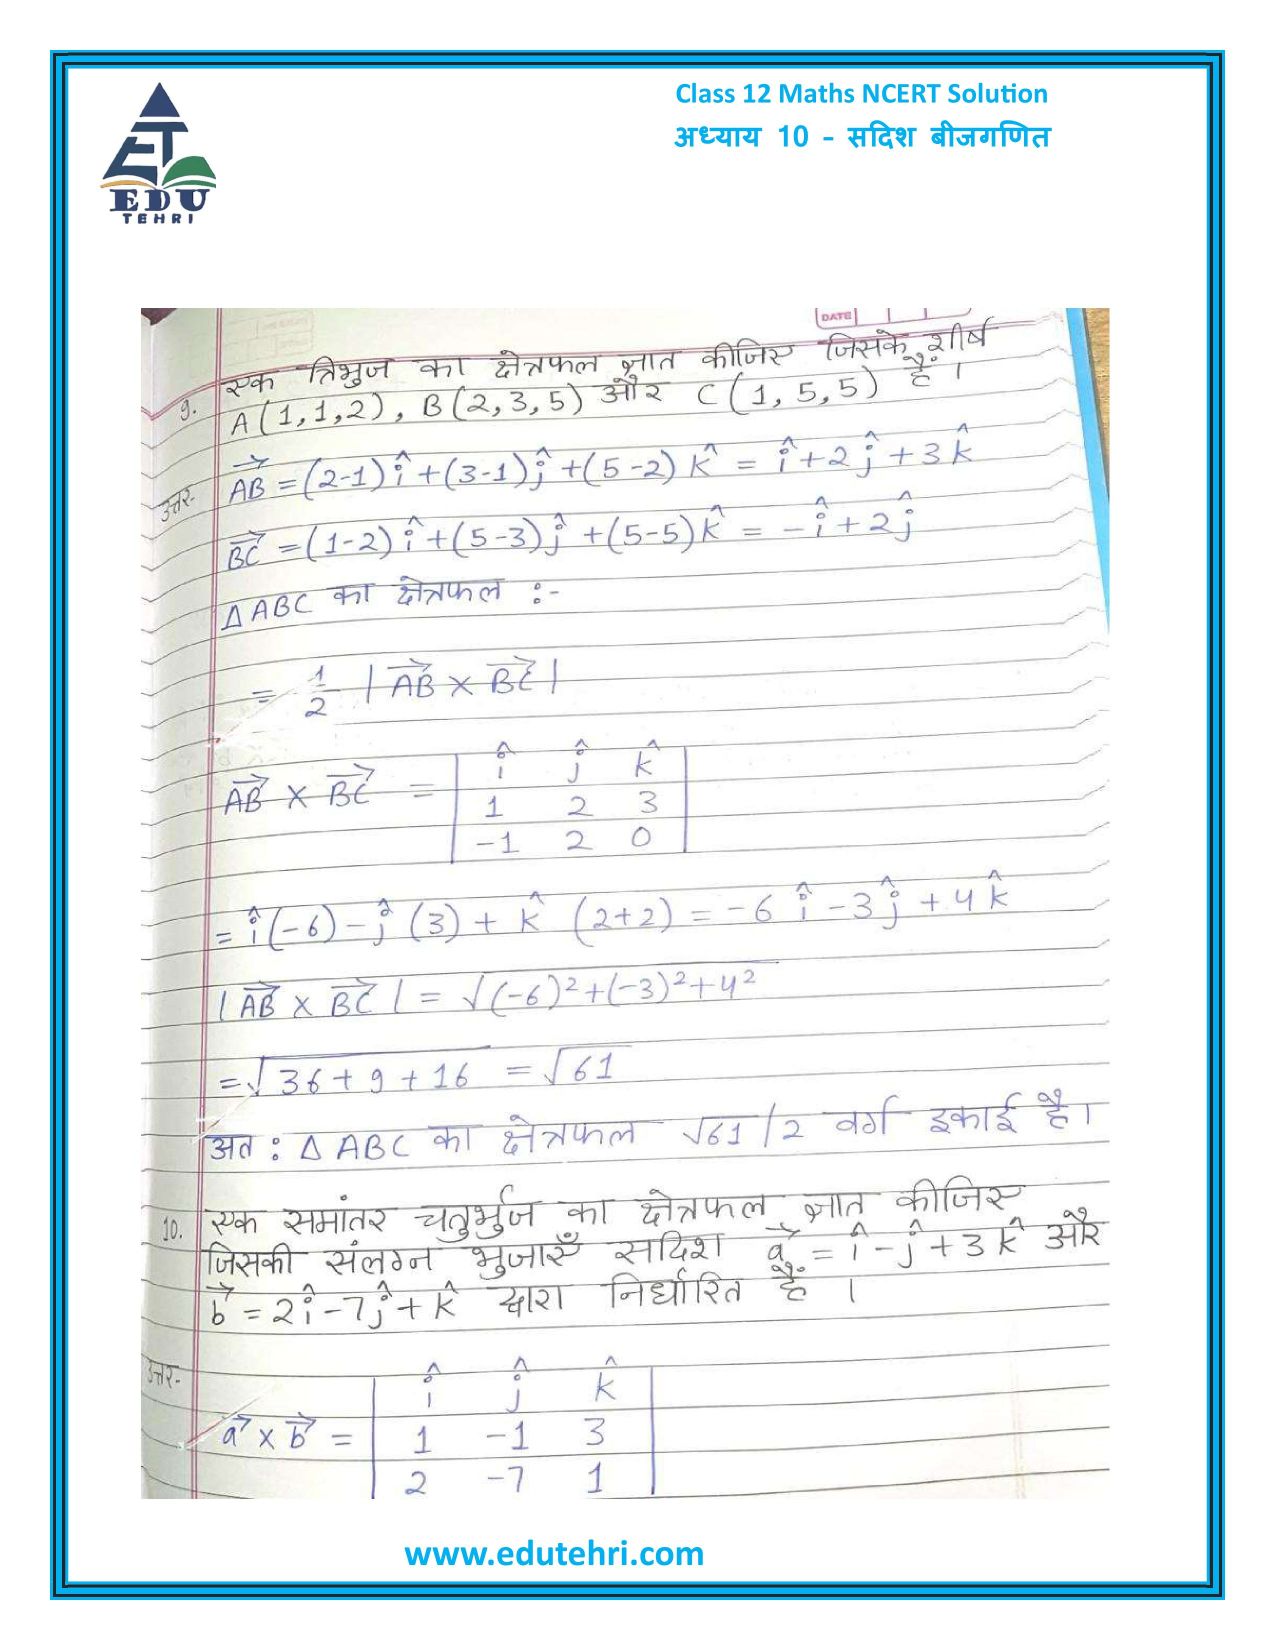 Class 12 Maths NCERT Solution
अध्याय 10 - सदिश बीजगणित
EDU
TEHRI
DATE
9. एक त्रिभुज का क्षेत्रफल ज्ञात कीजिए जिसके शीर्ष
A(1,1,2), B(2,3,5) और C(1,5,5) हैं।
उत्तर- AB⃗ = (2-1)î+(3-1)ĵ+(5-2)k̂ = î+2ĵ+3k̂
BC⃗ = (1-2)î+(5-3)ĵ+(5-5)k̂ = -î+2ĵ
Δ ABC का क्षेत्रफल :-
= 1/2 |AB⃗ × BC⃗|
AB⃗ × BC⃗ = | î ĵ k̂ |
| 1 2 3 |
| -1 2 0 |
= î(-6)-ĵ(3)+k̂(2+2) = -6î-3ĵ+4k̂
|AB⃗ × BC⃗| = √(-6)²+(-3)²+4²
= √36+9+16 = √61
अत: Δ ABC का क्षेत्रफल √61/2 वर्ग इकाई है।
10. एक समांतर चतुर्भुज का क्षेत्रफल ज्ञात कीजिए
जिसकी संलग्न भुजाएँ सदिश a⃗ = î-ĵ+3k̂ और
b⃗ = 2î-7ĵ+k̂ द्वारा निर्धारित हैं।
उत्तर-
a⃗ × b⃗ = | î ĵ k̂ |
| 1 -1 3 |
| 2 -7 1 |
www.edutehri.com